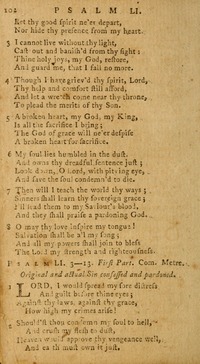 102 PSALM LI.
Let thy good spirit ne'er depart,
Nor hide thy presence from my heart.
3 I cannot live without thy light,
Cast out and banish'd from thy sight:
Thine holy joys, my God, restore,
And guard me, that I fall no more.
4 Though I have griev'd thy spirit, Lord,
Thy help and comfort still afford,
And let a wretch come near thy throne,
To plead the merits of thy Son.
5 A broken heart, my God, my King,
Is all the sacrifice I bring;
The God of grace will ne'er despise
A broken heart for sacrifice.
6 My soul lies humbled in the dust,
And owns thy dreadful sentence just;
Look down, O Lord, with pitying eye,
And save the soul condemn'd to die.
7 Then will I teach the world thy ways;
Sinners shall learn thy sovereign grace;
I'll lead them to my Saviour's blood,
And they shall praise a pardoning God.
8 O may thy love inspire my tongue!
Salvation shall be all my song;
And all my powers shall join to bless
The Lord my strength and righteousness.
PSALM LI. 3—13. First Part. Com. Metre.
Original and actual Sin confessed and pardoned.
1 LORD, I would spread my sore distress
And guilt before thine eyes;
Against thy laws, against thy grace,
How high my crimes arise!
2 Should'st thou condemn my soul to hell,
And crush my flesh to dust,
Heaven would approve thy vengeance well,
And earth must own it just.